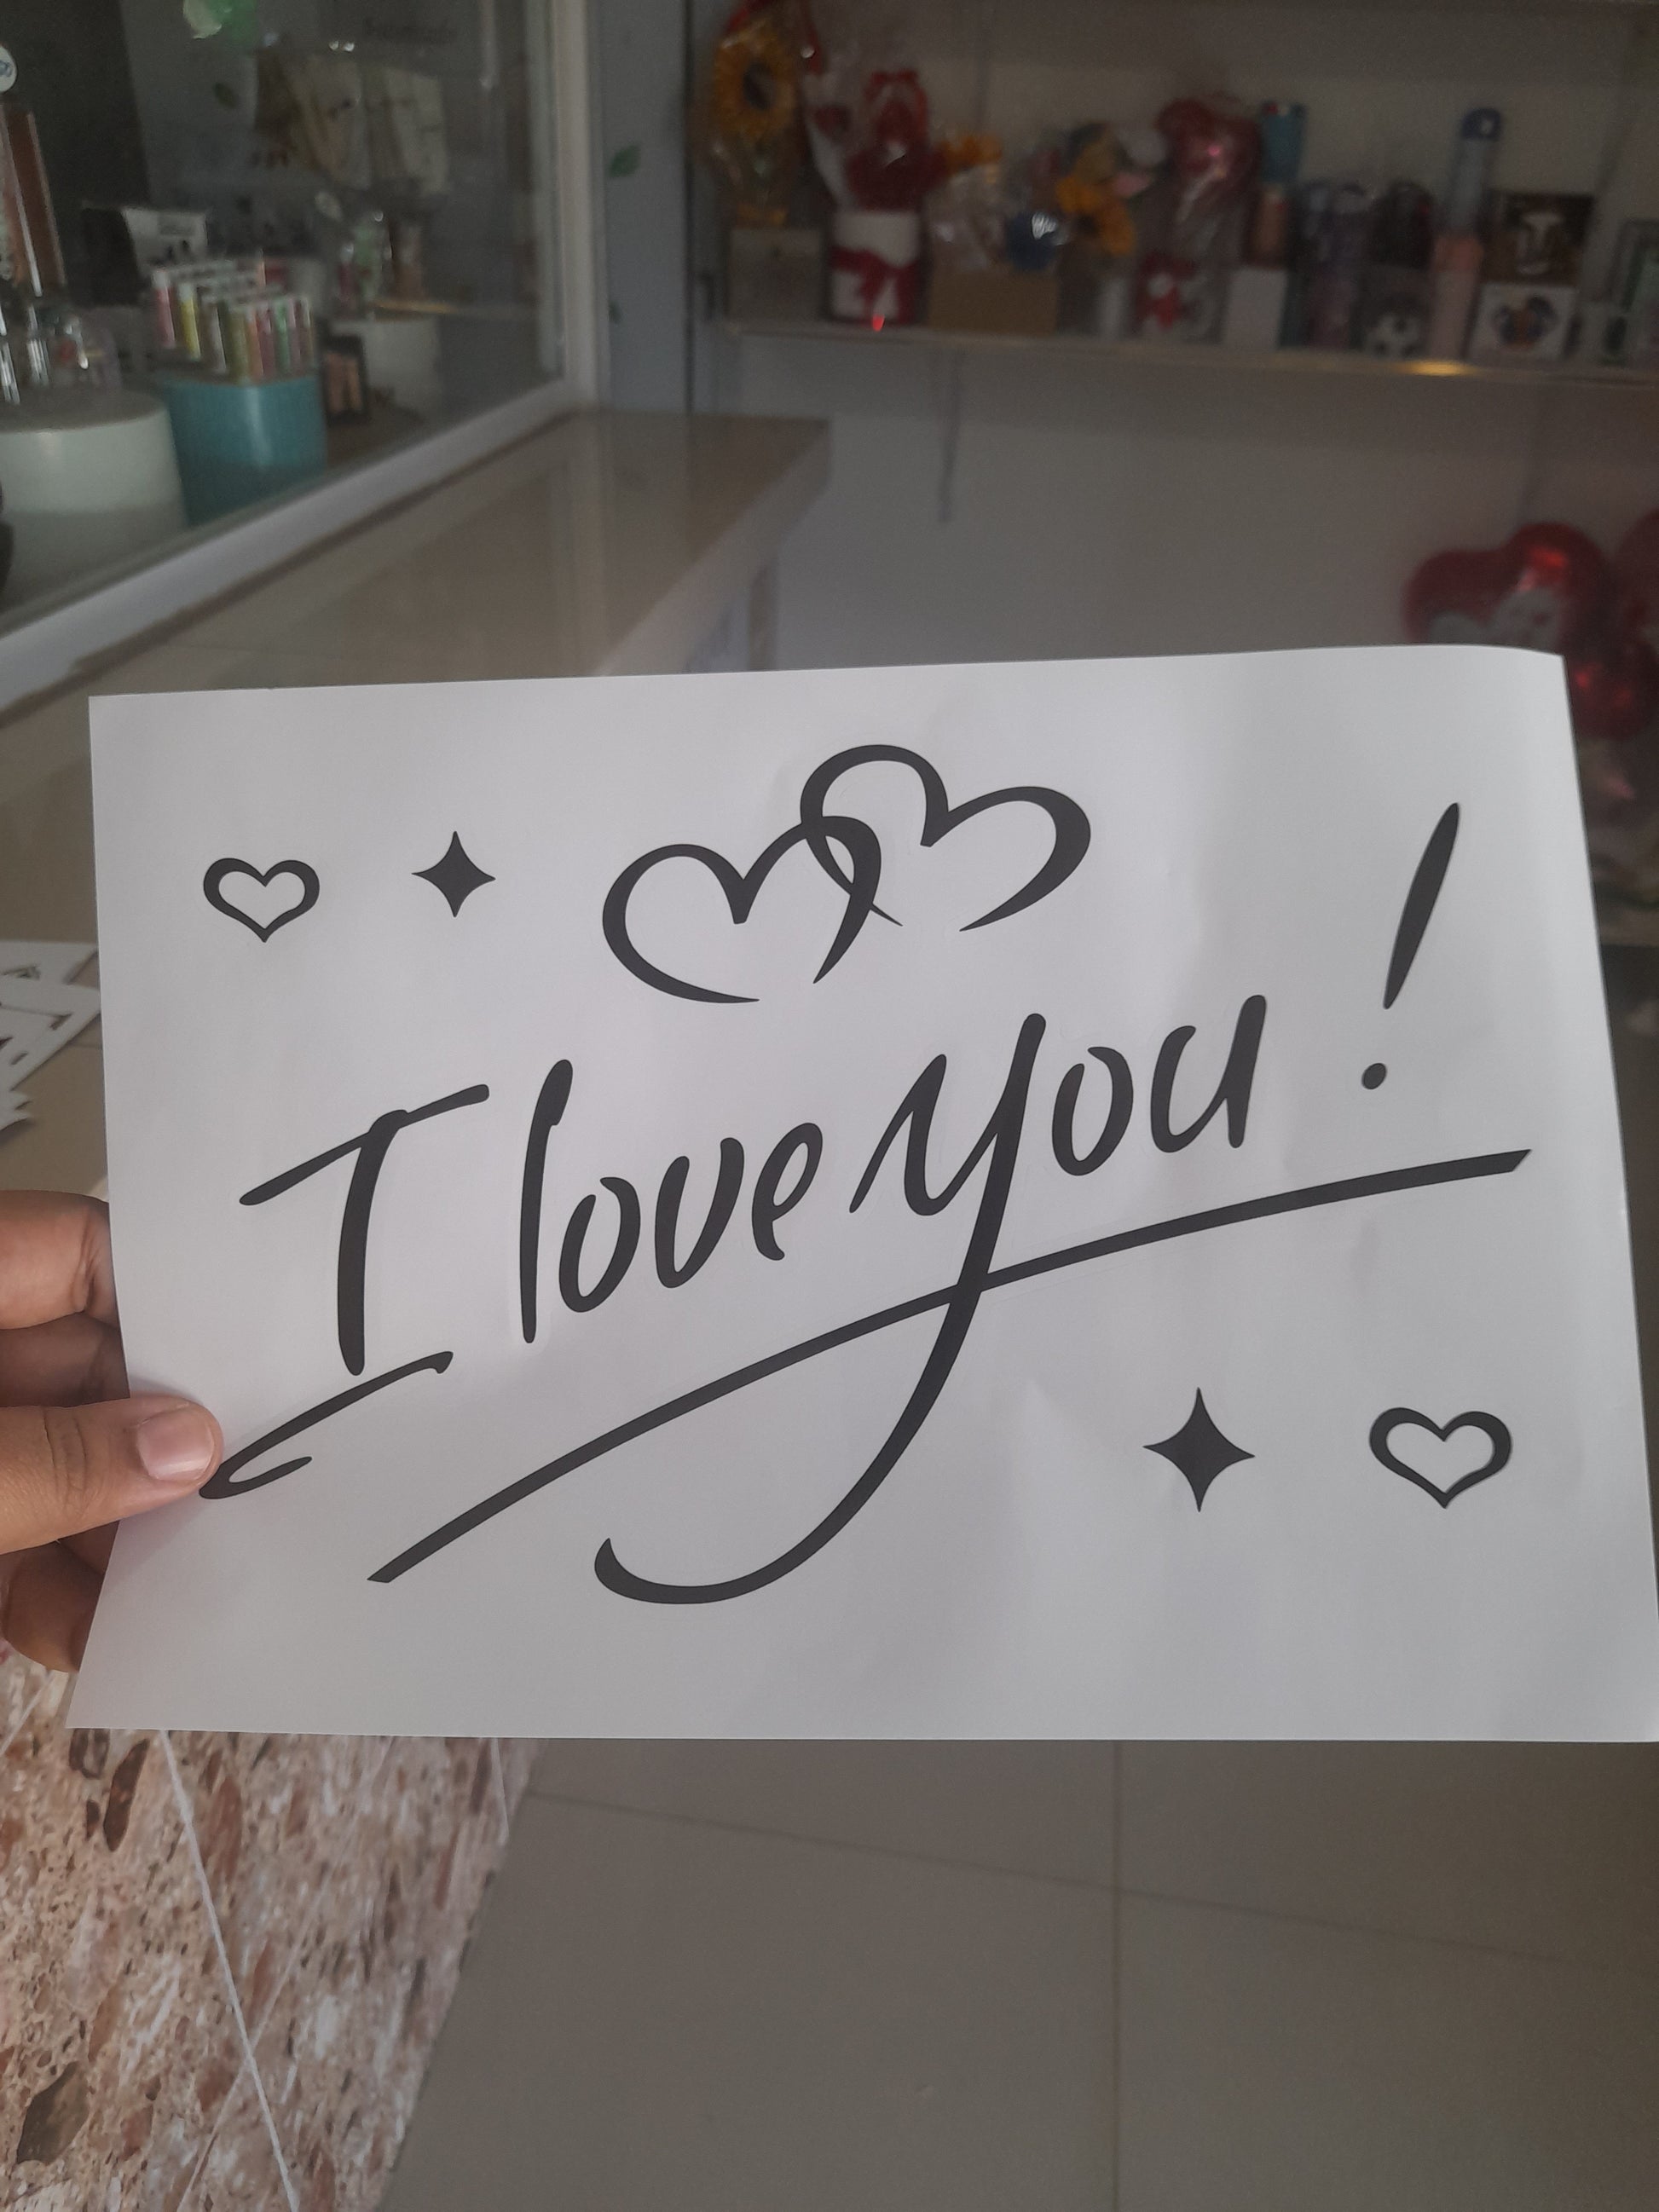 I love you !